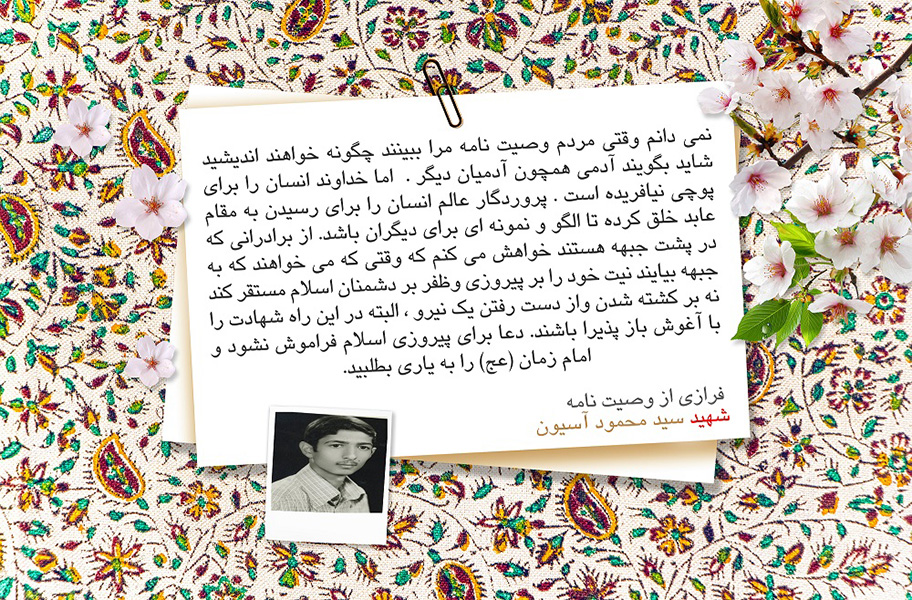 نمی دانم وقتی مردم وصیت نامه مرا ببینند چگونه خواهند اندیشید
شاید بگویند آدمی همچون آدمیان دیگر . اما خداوند انسان را برای
پوچی نیافریده است . پروردگار عالم انسان را برای رسیدن به مقام
عابد خلق کرده تا الگو و نمونه ای برای دیگران باشد. از برادرانی که
در پشت جبهه هستند خواهش می کنم که وقتی که می خواهند که به
جبهه بیایند نیت خود را بر پیروزی وظفر بر دشمنان اسلام مستقر کند
نه بر کشته شدن واز دست رفتن یک نیرو ، البته در این راه شهادت را
با آغوش باز پذیرا باشند. دعا برای پیروزی اسلام فراموش نشود و
امام زمان (عج) را به یاری بطلبید.
فرازی از وصیت نامه
شهید سید محمود آسیون